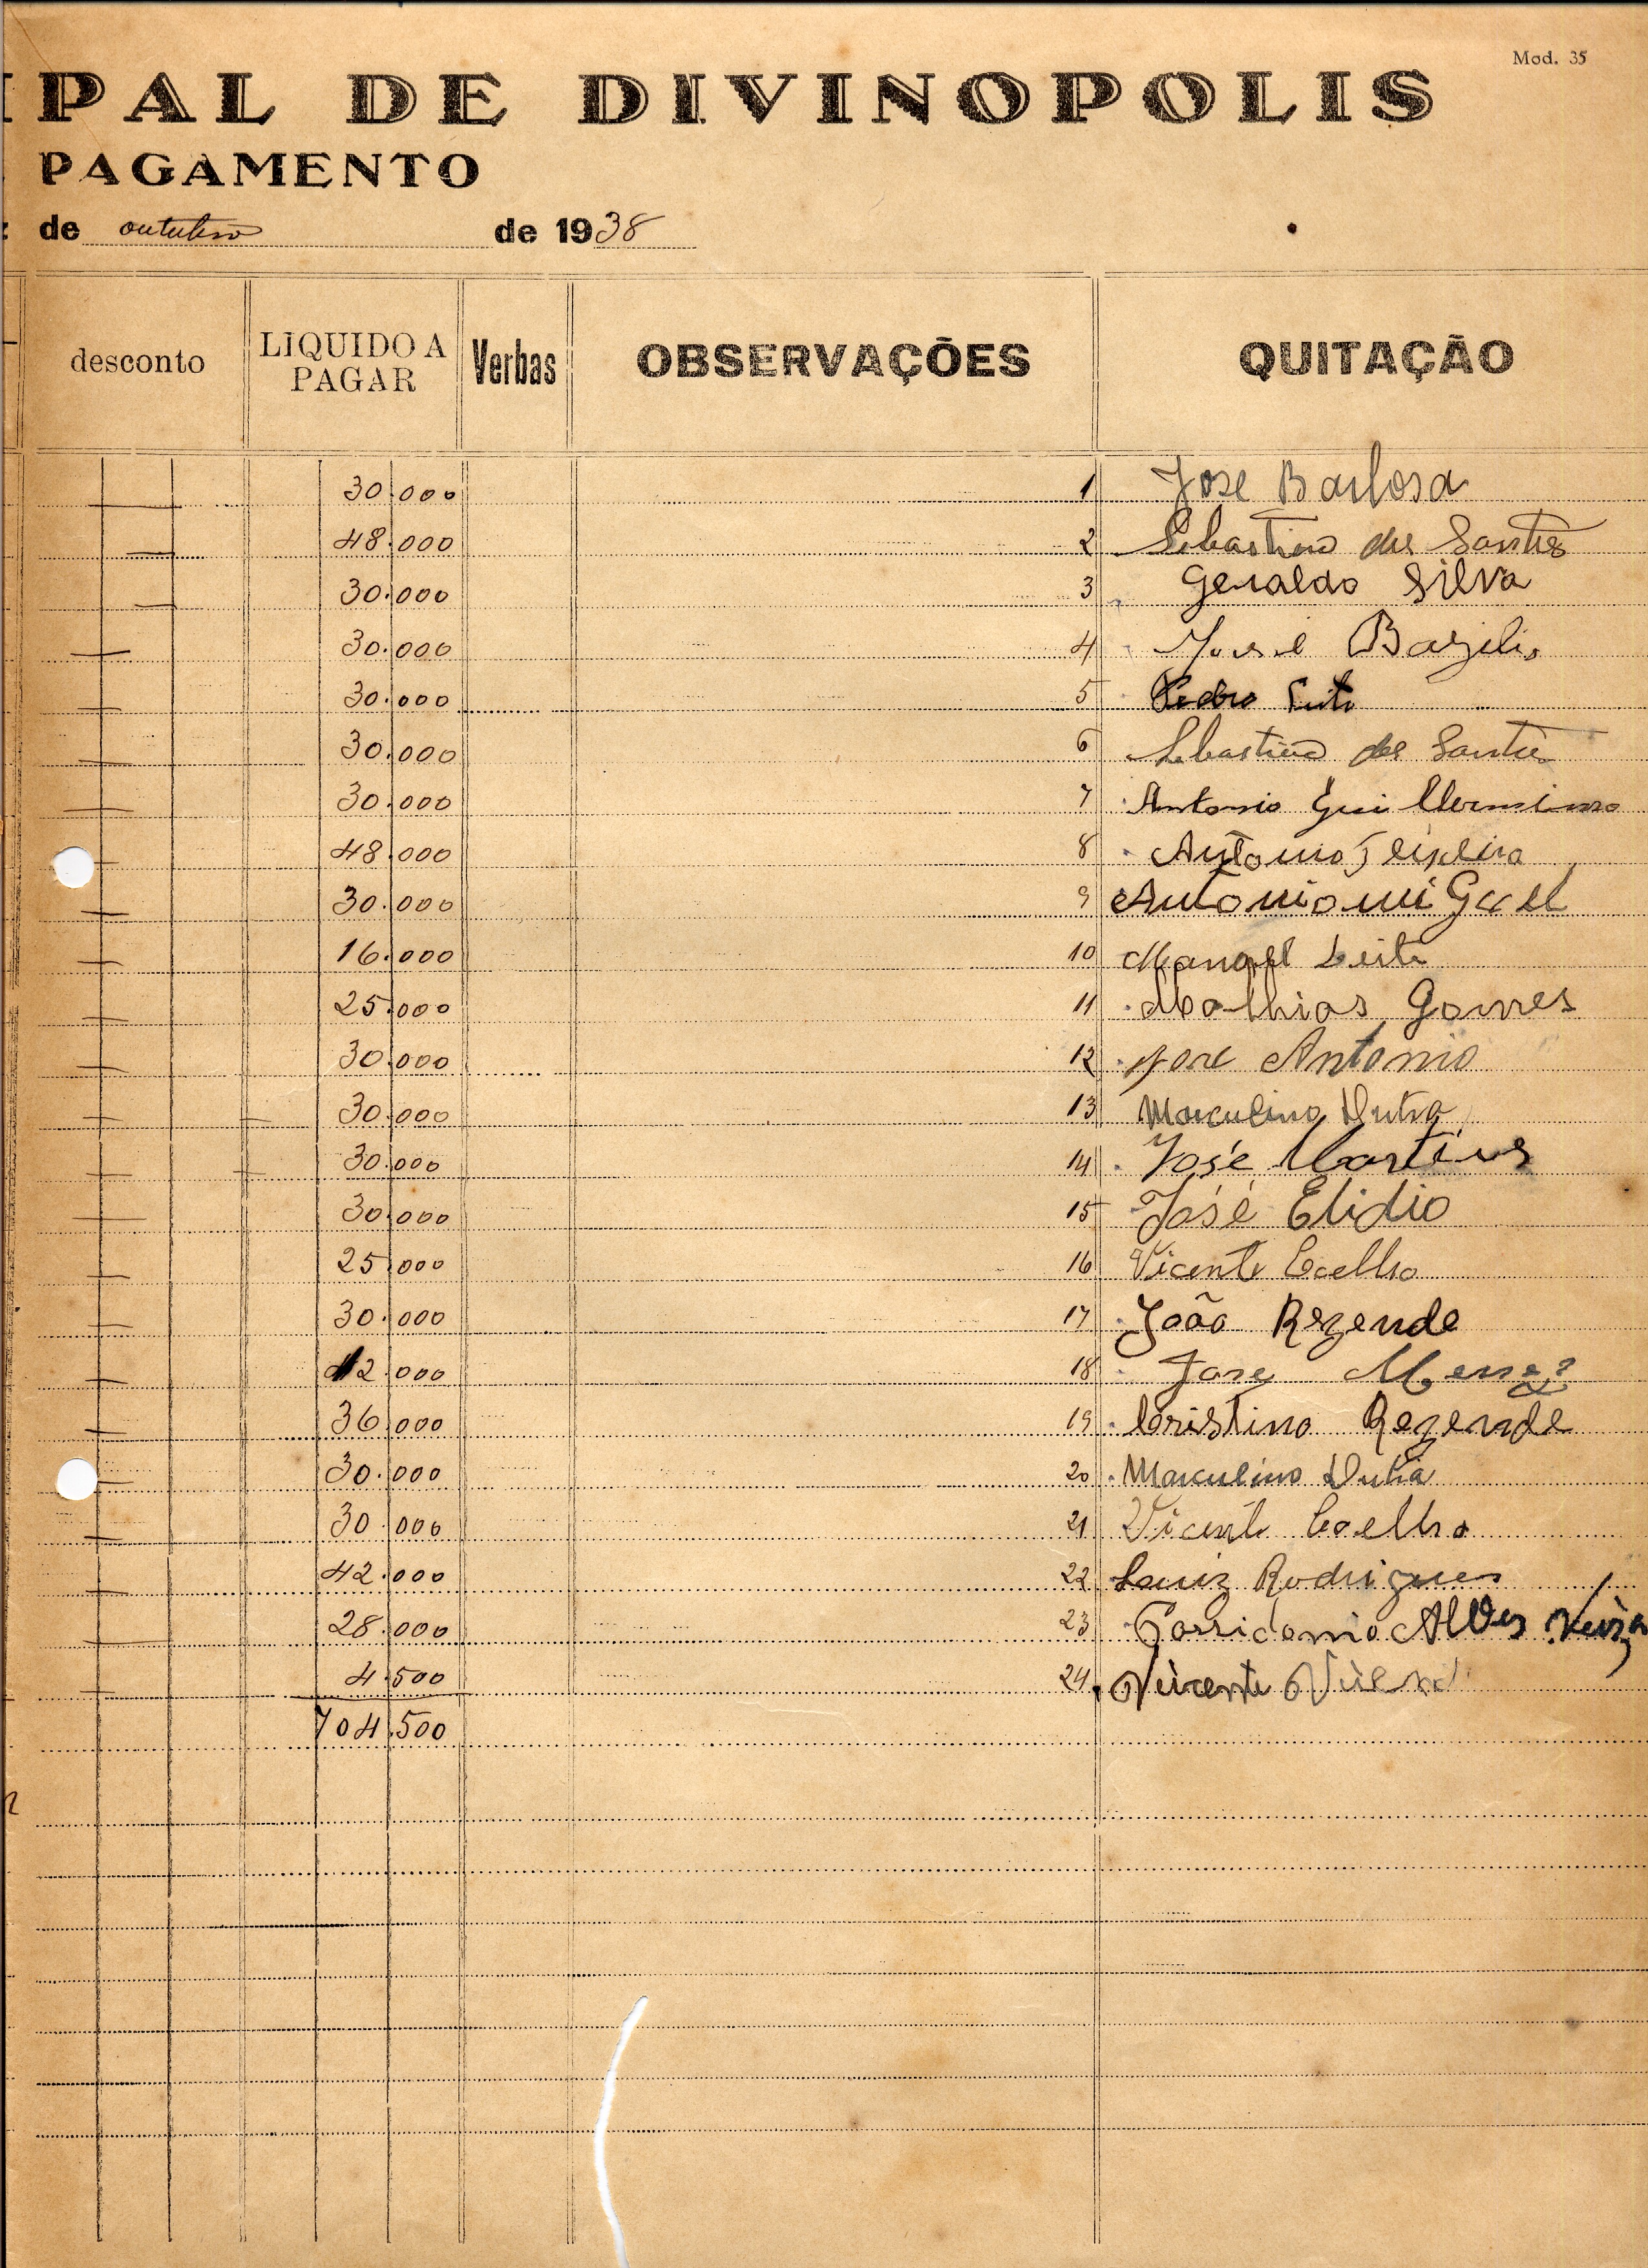 Mod. 35
IPAL DE DIVINOPOLIS
PAGAMENTO
de outubro de 1938
desconto LIQUIDO A PAGAR Verbas OBSERVAÇÕES QUITAÇÃO
30.000 1 Jose Barbosa
48.000 2 Sebastião dos Santos
30.000 3 Geraldo Silva
30.000 4 Bazilio
30.000 5 Pedro
30.000 6 Sebastião dos Santos
30.000 7 Antonio
48.000 8 Antonio Teixeira
30.000 9 Antonio miGuel
16.000 10 Manoel Leite
25.000 11 Mathias Gomes
30.000 12 Jose Antonio
30.000 13 Marculino Dutra
30.000 14 José Martins
30.000 15 José Elidio
25.000 16 Vicente Coelho
30.000 17 João Rezende
12.000 18 Jose
36.000 19 Cristino Rezende
30.000 20 Marculino Dutra
30.000 21 Vicente Coelho
42.000 22 Luiz Rodrigues
28.000 23 Alves
4.500 24 Vicente
704.500